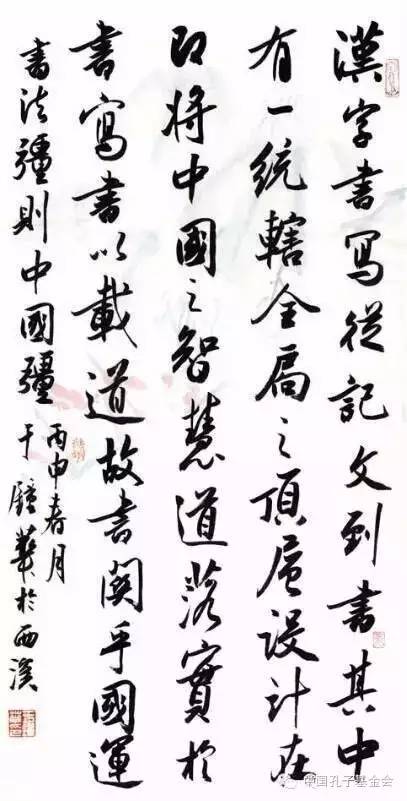 漢字書寫從記文到書其中
有一統轄全局之頂層設計在
即將中國之智慧道落實於
書寫書以載道故書關乎國運
書法彊則中國彊
丙申春月
于鐘華於西溪
中国孔子基金会